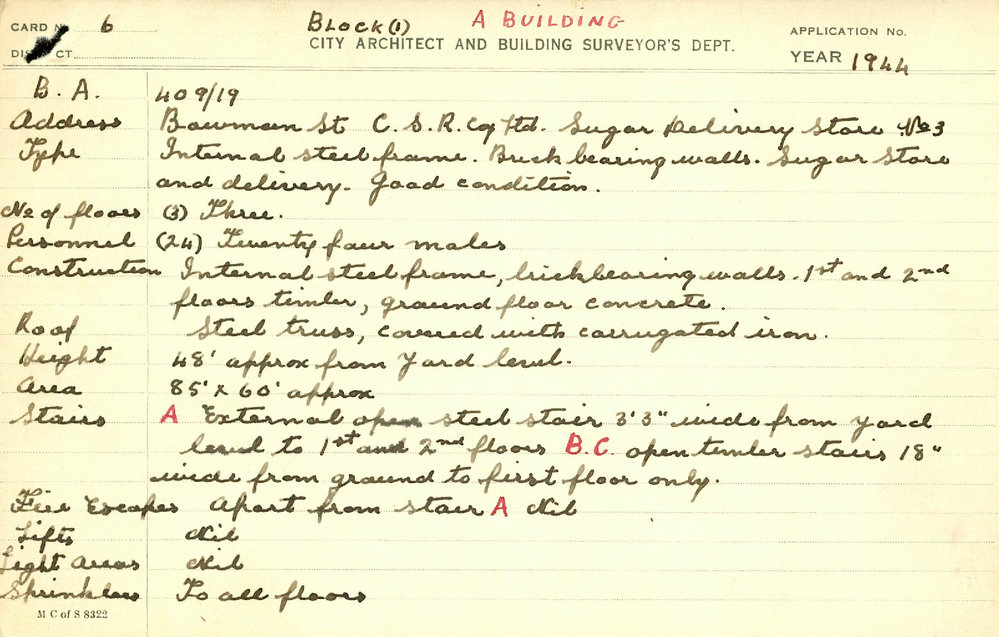 CARD No. 6 BLOCK (1) A BUILDING
CITY ARCHITECT AND BUILDING SURVEYOR'S DEPT. APPLICATION No.
DISTRICT YEAR 1944
B. A. 409/19
Address Bowman St C. S. R. Coy Ltd. Sugar Delivery Store No 3
Type Internal steel frame. Brick bearing walls. Sugar Store
and delivery. Good condition.
No of floors (3) Three.
Personnel (24) Twenty four males
Construction Internal steel frame, brick bearing walls. 1st and 2nd
floors timber, ground floor concrete.
Roof Steel truss, covered with corrugated iron.
Height 48' approx from yard level.
Area 85' x 60' approx
Stairs A External open steel stair 3'3" wide from yard
level to 1st and 2nd floors B.C. open timber stairs 18"
wide from ground to first floor only.
Fire Escapes Apart from stair A Nil
Lifts Nil
Light Areas Nil
Sprinklers To all floors
M C of S 8322